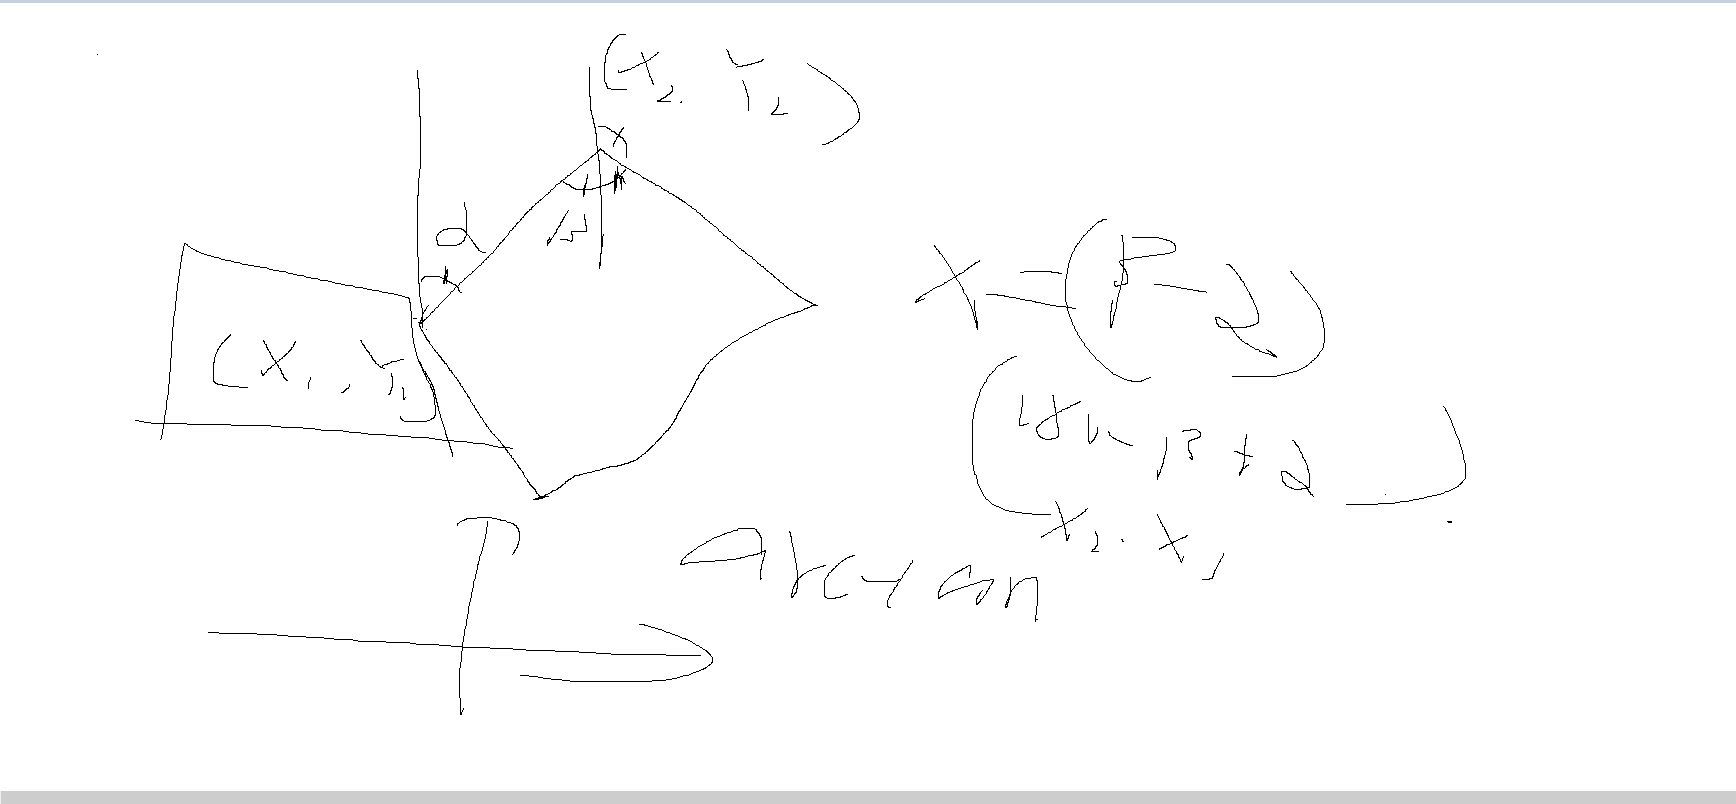 (X2. Y2)
α
β
(X1, Y1)
X - (β - α)
(180 - β + α)
X2. X1
arctan